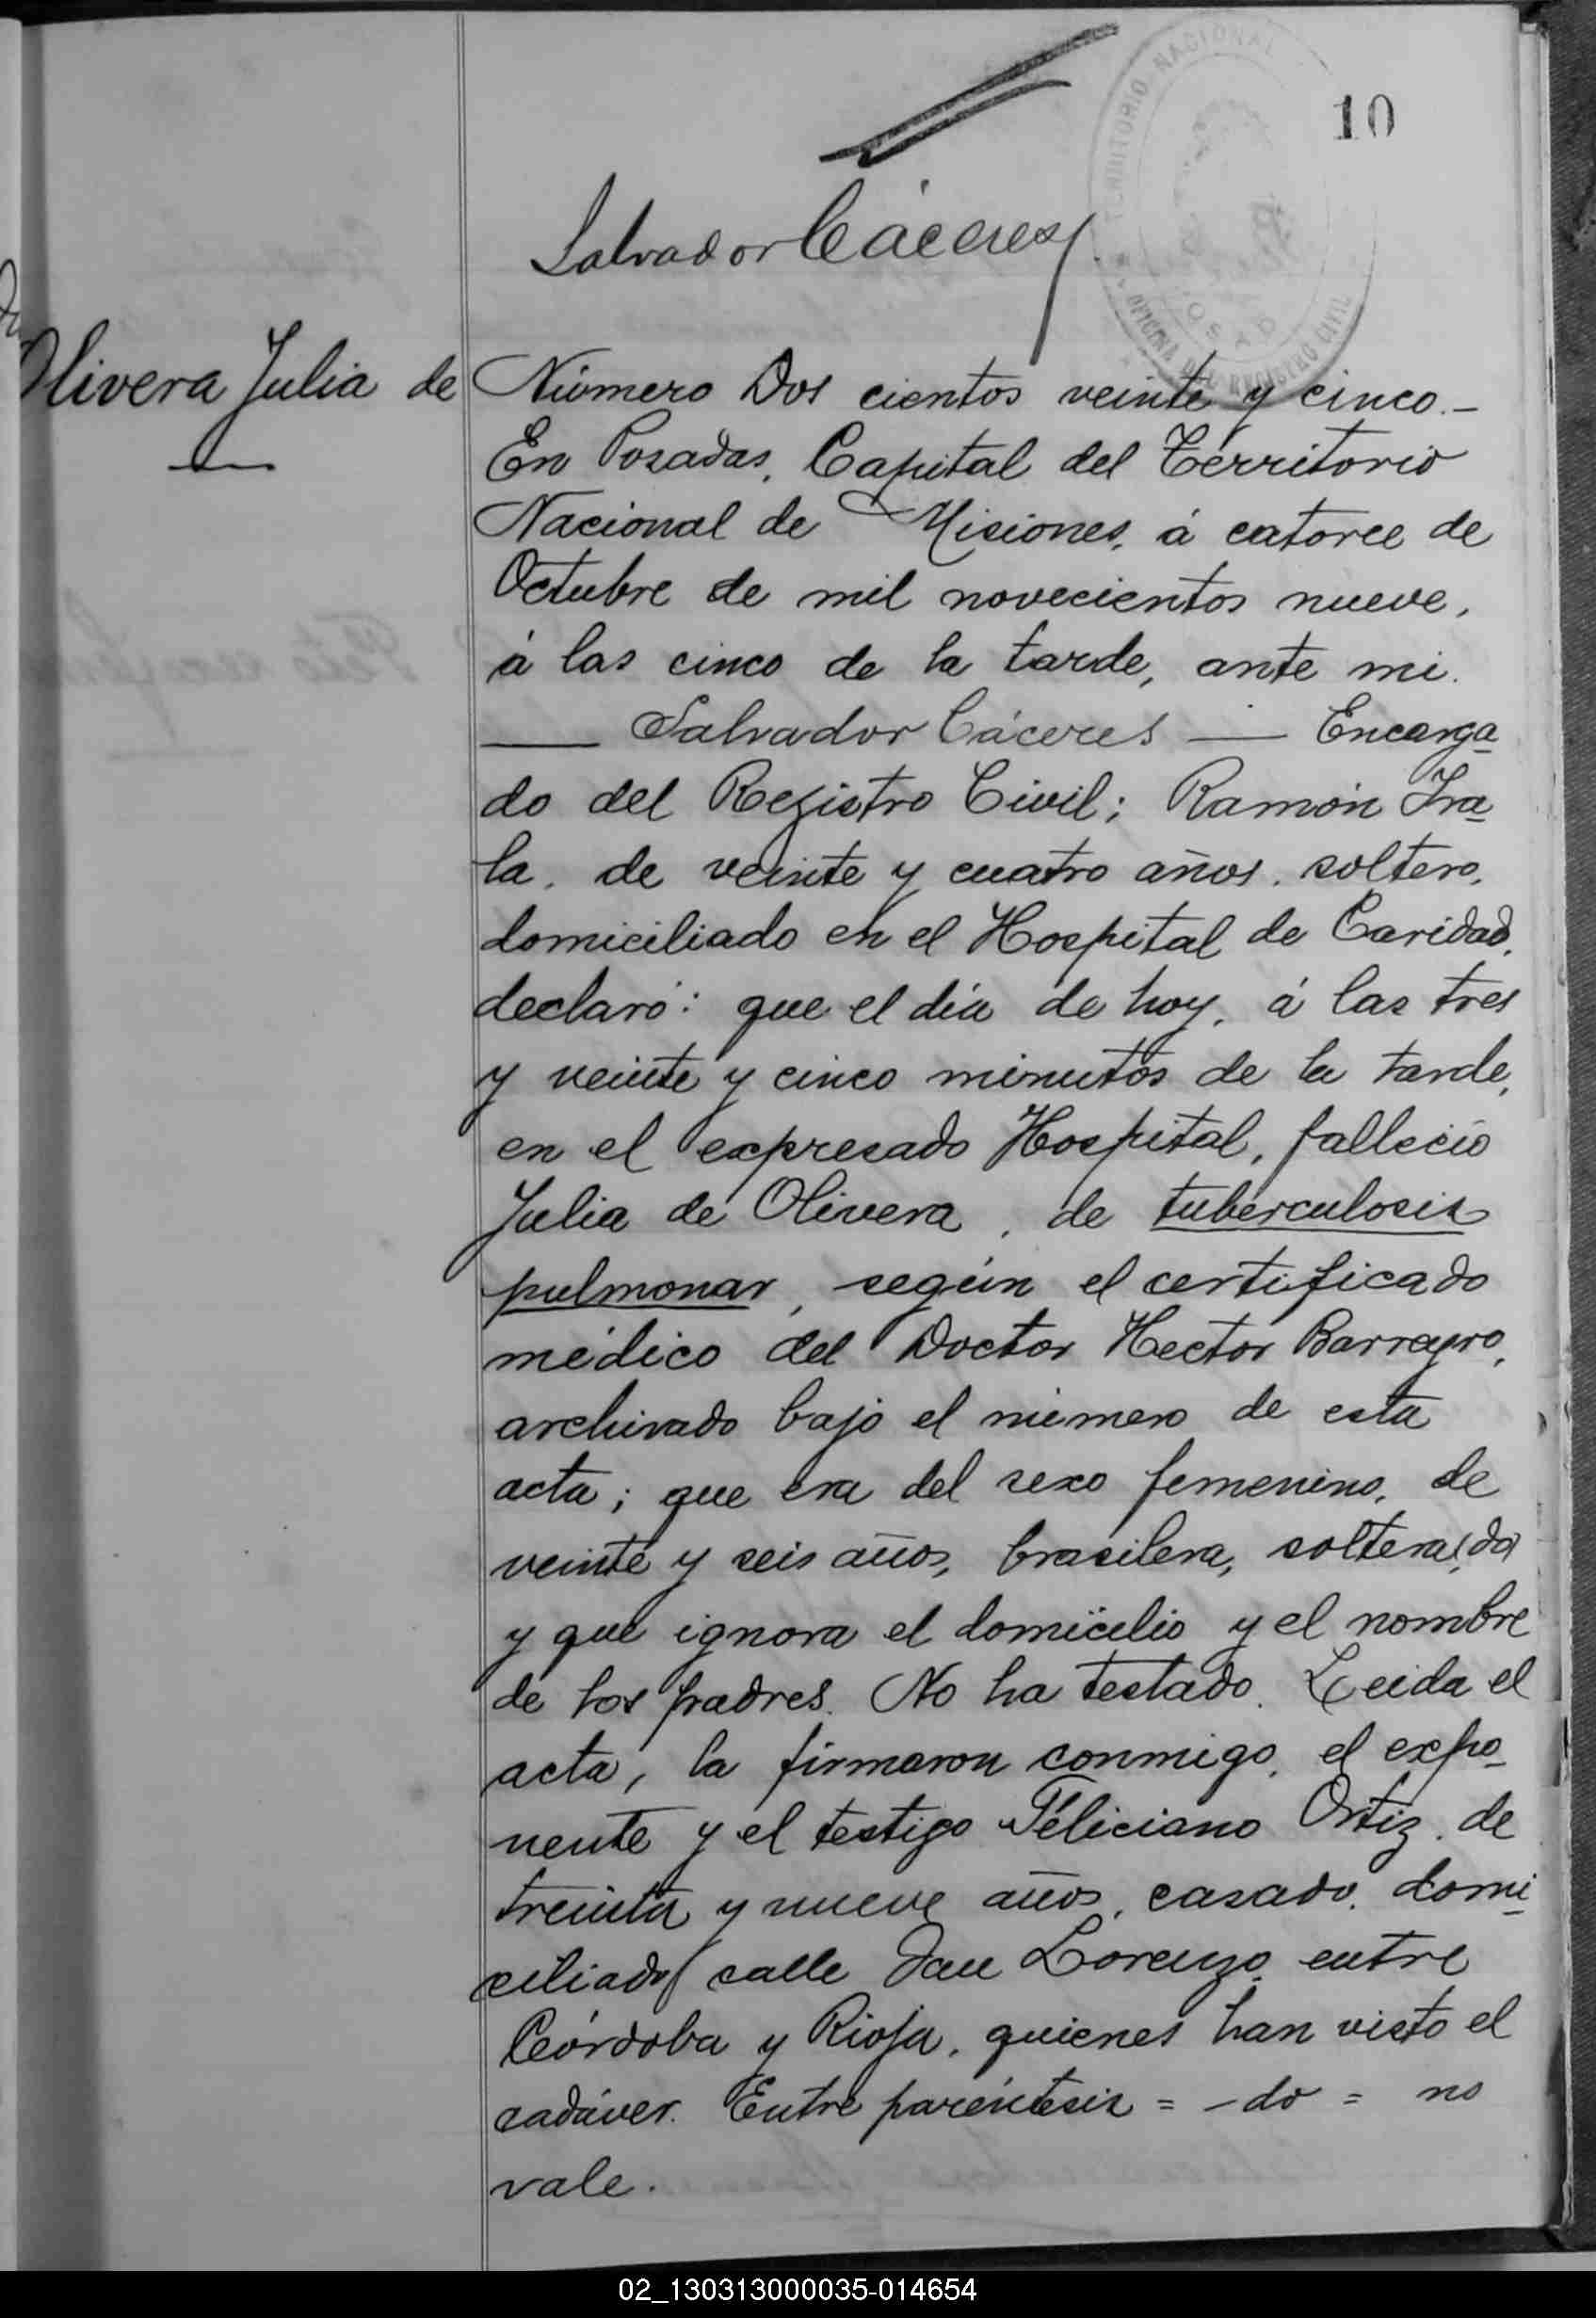 10
TERRITORIO NACIONAL
OFICINA DEL REGISTRO CIVIL
Salvador Cáceres
Olivera Julia de
Número Dos cientos veinte y cinco.-
En Posadas, Capital del Territorio
Nacional de Misiones, á catorce de
Octubre de mil novecientos nueve,
á las cinco de la tarde, ante mi.
— Salvador Cáceres — Encarga-
do del Registro Civil; Ramón Ira-
la, de veinte y cuatro años, soltero,
domiciliado en el Hospital de Caridad,
declaró: que el día de hoy, á las tres
y veinte y cinco minutos de la tarde,
en el expresado Hospital, falleció
Julia de Olivera, de tuberculosis
pulmonar, según el certificado
médico del Doctor Hector Barreyro,
archivado bajo el número de esta
acta; que era del sexo femenino, de
veinte y seis años, brasilera, soltera(do)
y que ignora el domicilio y el nombre
de los padres. No ha testado. Leida el
acta, la firmaron conmigo, el expo-
nente y el testigo Féliciano Ortiz, de
treinta y nueve años, casado, domi-
ciliado calle San Lorenzo entre
Córdoba y Rioja, quienes han visto el
cadáver. Entre paréntesis = -do = no
vale.
02_130313000035-014654